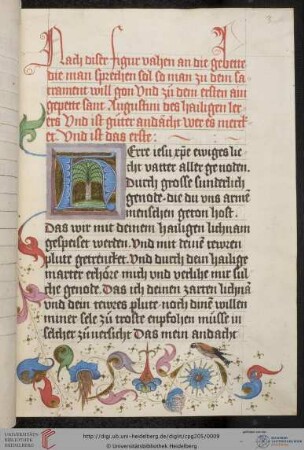 Nach diser figur vahen an die gebette
die man sprechen sol so man zu dem sa-
crament will gon Vnd zů dem ersten ain
gepette sant Augustini des hailigen ler-
ers Vnd ist gůter andacht wer es merk-
et. Vnd ist das erste:
Herre iesu xp̄e ewiges lie-
cht vatter aller genoden.
Durch grosse sunderlich
genode die du vns arme
menschen geton host.
Das wir mit deinem hailigen lichnam
gespeiset werden. Vnd mit deinē tewren
plute getrencket. Vnd durch dein hailige
marter erhöre mich vnd verlihe mir sul-
che genode. Das ich deinen zarten lichnā
vnd dein tewres plute noch dinē willen
miner sele zů troste enpfohen müsse in
sölcher zůuersicht Das mein andacht
UNIVERSITÄTS-
BIBLIOTHEK
HEIDELBERG
http://digi.ub.uni-heidelberg.de/diglit/cpg205/0009
© Universitätsbibliothek Heidelberg